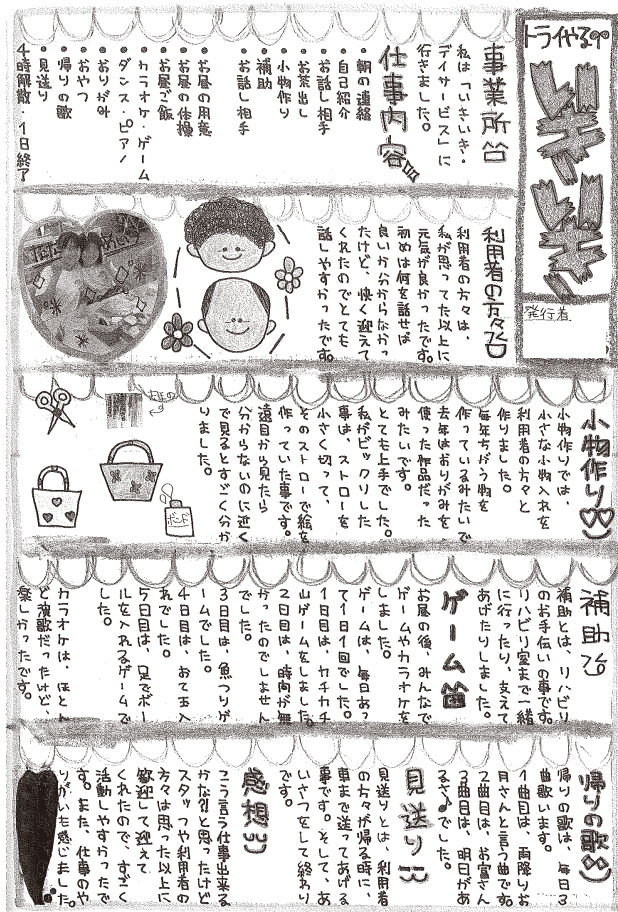 トライやる
いきいき
発行者
事業所
私は「いきいき・
デイサービス」に
行きました。
仕事内容
・朝の連絡
・自己紹介
・お話し相手
・お茶出し
・小物作り
・補助
・お話し相手
・お昼の用意
・お昼の体操
・お昼ご飯
・カラオケ・ゲーム
ダンス・ピアノ
・おりがみ
・おやつ
・帰りの歌
・見送り
4時解散・1日終了
利用者の方々
利用者の方々は、
私が思ってた以上に
元気が良かったです。
初めは何を話せば
良いか分からなかっ
たけど、快く迎えて
くれたのでとても
話しやすかったです。
小物作り
小物作りでは、
小さな小物入れを
利用者の方々と
作りました。
毎年ちがう物を
作っているみたいで
去年はおりがみを
使った作品だった
みたいです。
とても上手でした。
私がビックリした
事は、ストローを
小さく切って、
そのストローで絵を
作っていた事です。
遠目から見たら
分からないのに近く
で見るとすごく分か
りました。
ボンド
補助
補助とは、リハビリ
のお手伝いの事です。
リハビリ室まで一緒
に行ったり、支えて
あげたりしました。
ゲーム
お昼の後、みんなで
ゲームやカラオケを
しました。
ゲームは、毎日あっ
て1日1回でした。
1日目は、カチカチ
山ゲームをしました。
2日目は、時間が無
かったのでしません
でした。
3日目は、魚つりゲ
ームでした。
4日目は、おて玉入
れでした。
5日目は、足でボー
ルを入れるゲームで
した。
カラオケは、ほとん
ど演歌だったけど、
楽しかったです。
帰りの歌
帰りの歌は、毎日3
曲歌います。
1曲目は、雨降りお
月さんと言う曲です。
2曲目は、お富さん
3曲目は、明日があ
るさ♪でした。
見送り
見送りとは、利用者
の方々が帰る時に、
車まで送ってあげる
事です。そして、あ
いさつをして終わり
です。
感想
こう言う仕事出来る
かな?!と思ったけど
スタッフや利用者の
方々は思った以上に
歓迎して迎えて
くれたので、すごく
活動しやすかったで
す。また、仕事のや
りがいも感じました。